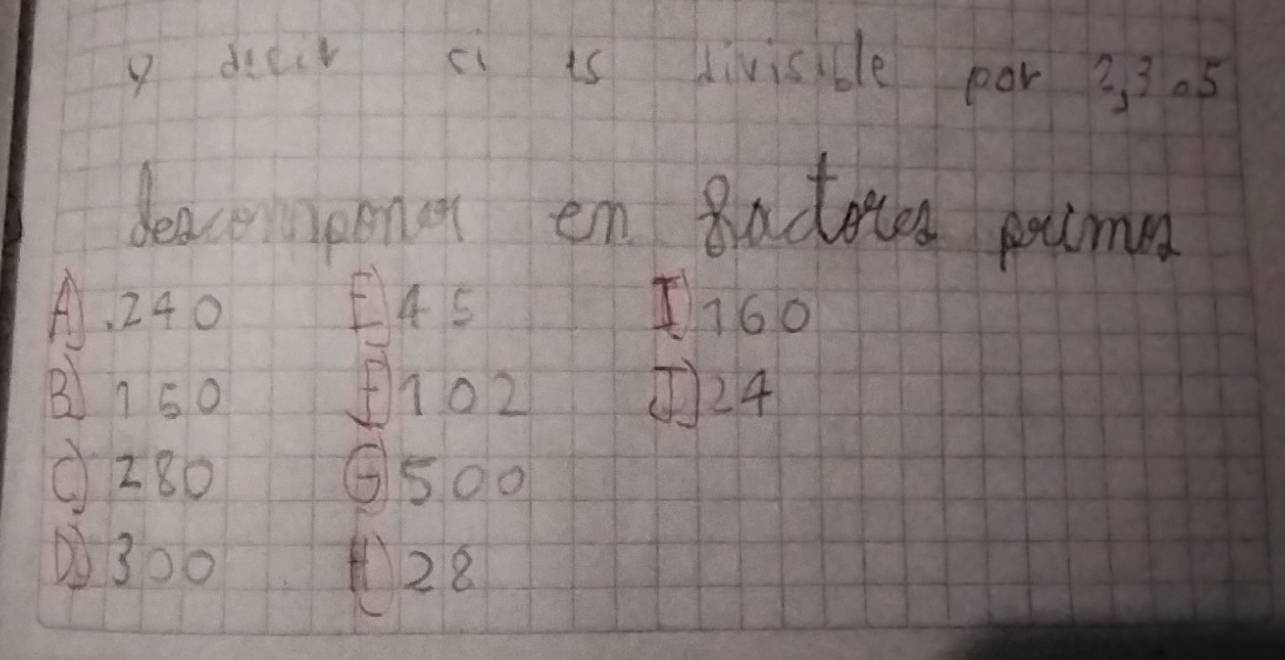 y decir si es divisible por 2,3 o 5
descomponer en factores primos
A) .240 E) 45 I) 160
B) 150 F) 102 J) 24
C) 280 G) 500
D) 300 H) 28